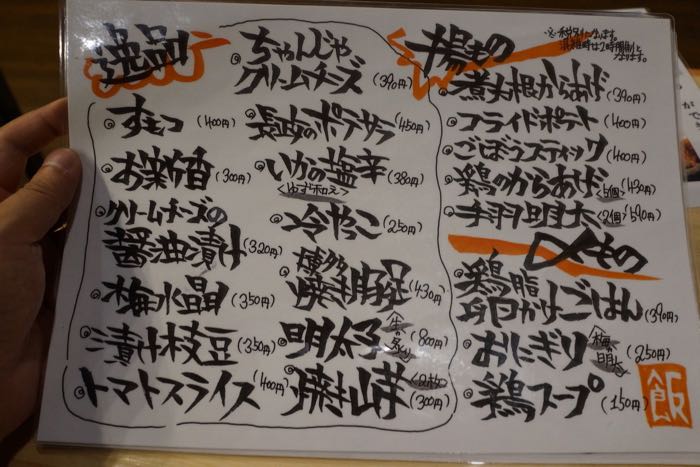 逸品
◎ちゃんじゃ
クリームチーズ (390円)
◎すもつ (400円)
◎お新香 (300円)
◎クリームチーズの
醤油漬け (320円)
◎梅水晶 (350円)
◎漬け枝豆 (350円)
◎トマトスライス (400円)
◎長政のポテサラ (450円)
◎いかの塩辛 (380円)
<ゆず和え>
◎冷やっこ (250円)
◎博多
焼き豚足 (430円)
◎明太子 <生・炙り> (800円)
◎焼き山芋 (300円)
揚もの
※税別になります。
混雑時は2時間制と
なります。
◎煮大根からあげ (390円)
◎フライドポテト (400円)
◎ごぼうスティック (400円)
◎鶏のからあげ <5個> (430円)
◎手羽明太 <2個> (590円)
〆もの
◎鶏脂
卵かけごはん (390円)
◎おにぎり <梅 明太> (250円)
◎鶏スープ (150円)
飯